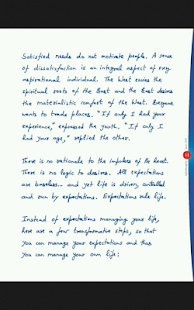 Satisfied needs do not motivate people. A sense
of dissatisfaction is an integral aspect of every
aspirational individual. The West envies the
spiritual roots of the East and the East desires
the materialistic comfort of the West. Everyone
wants to trade places. "If only I had your
experience," expressed the youth. "If only I
had your age," replied the other.
There is no rationale to the impulses of the heart.
There is no logic to desires. All expectations
are baseless... and yet life is driven, controlled
and run by expectations. Expectations rule life.
Instead of expectations managing your life,
here are a few transformative steps, so that
you can manage your expectations and thus
you can manage your own life: